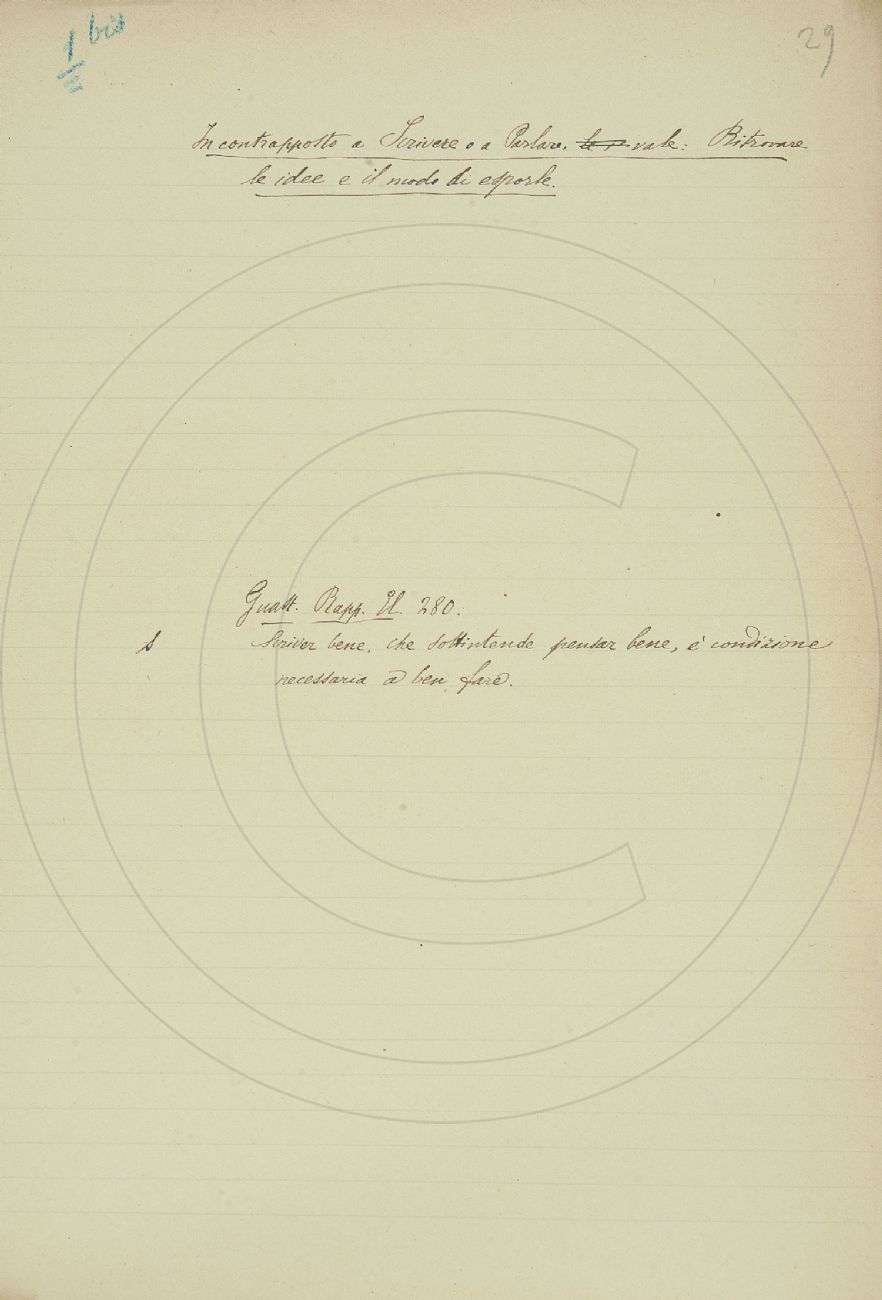 1 bis
29
In contrapposto a Scrivere o a Parlare, vale: Ritrovare
le idee e il modo di esporle.
Guast. Rapp. El. 280.
s Scriver bene, che sottintende pensar bene, è condizione
necessaria a ben fare.